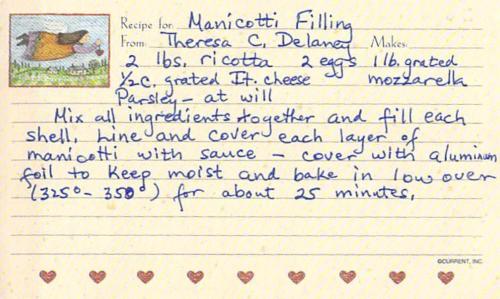 Recipe for: Manicotti Filling
From: Theresa C. Delaney Makes:
2 lbs. ricotta 2 eggs 1 lb. grated
1/2 c. grated It. cheese mozzarella
Parsley - at will
Mix all ingredients together and fill each
shell. Line and cover each layer of
manicotti with sauce - cover with aluminum
foil to keep moist and bake in low over
(325° - 350°) for about 25 minutes.
©CURRENT, INC.